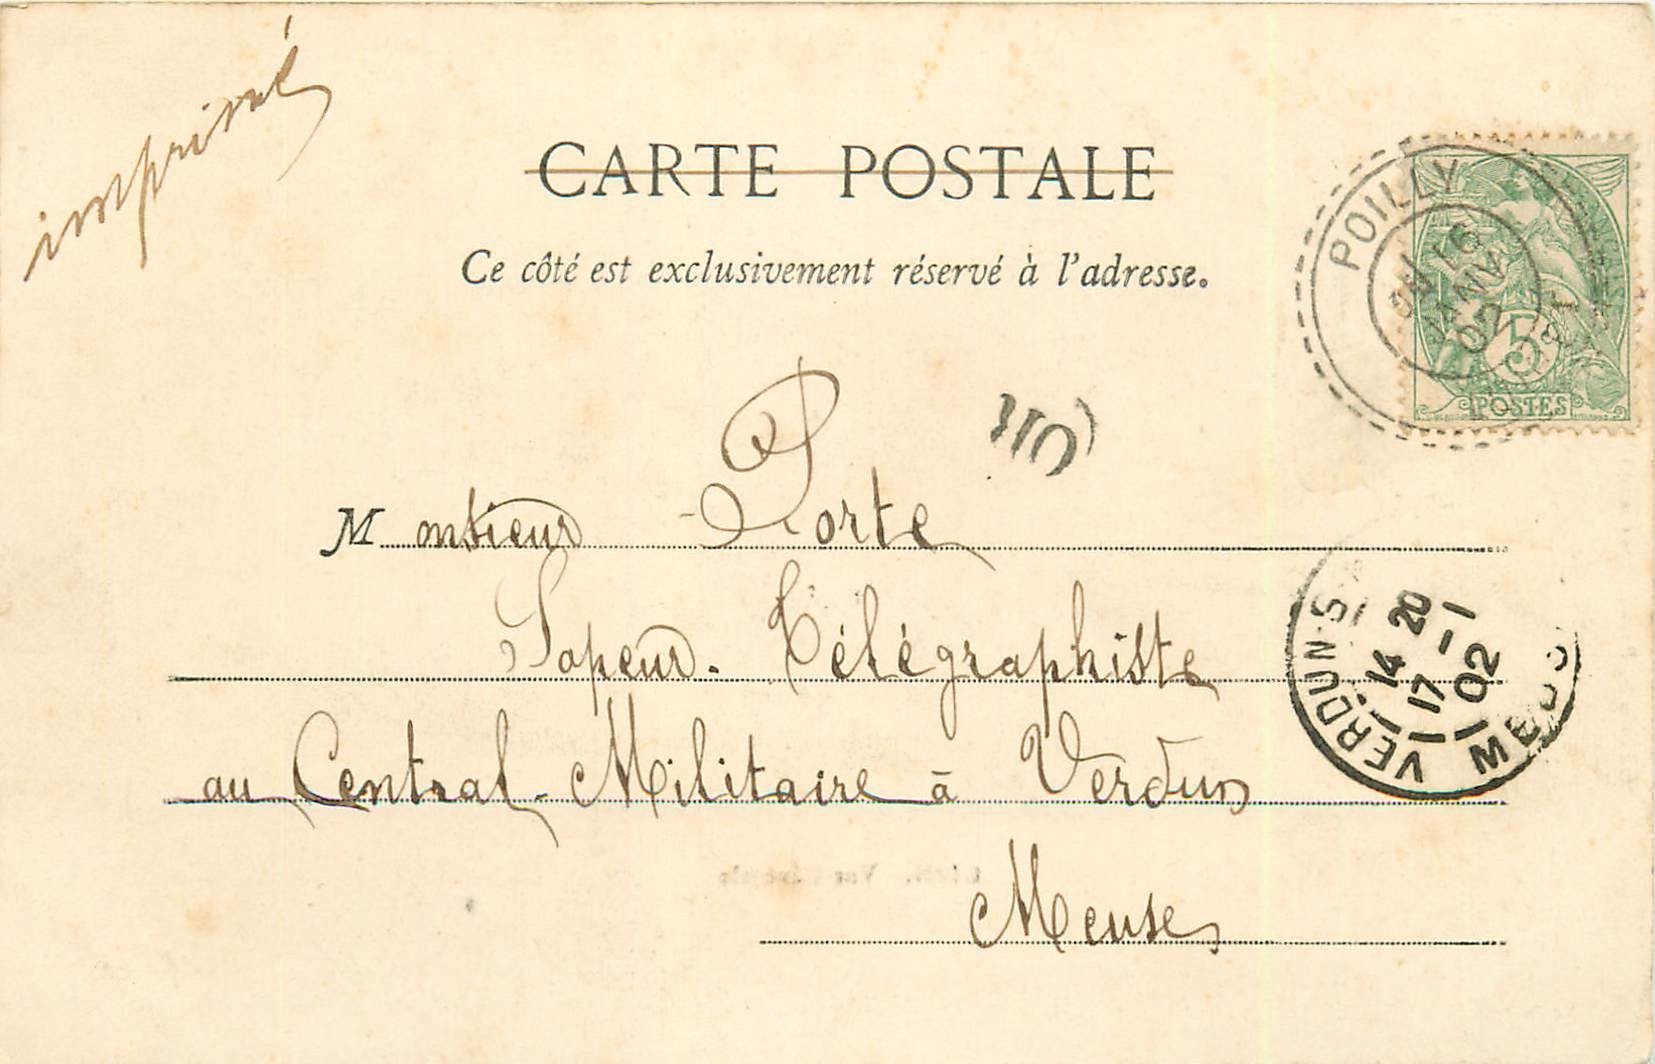 imprimé
CARTE POSTALE
Ce côté est exclusivement réservé à l'adresse.
POILLY
16
JANV
02
5
POSTES
Monsieur Porte
Sapeur-Télégraphiste
au Central-Militaire à Verdun
Meuse
VERDUN-S
14 20
17 -1
02